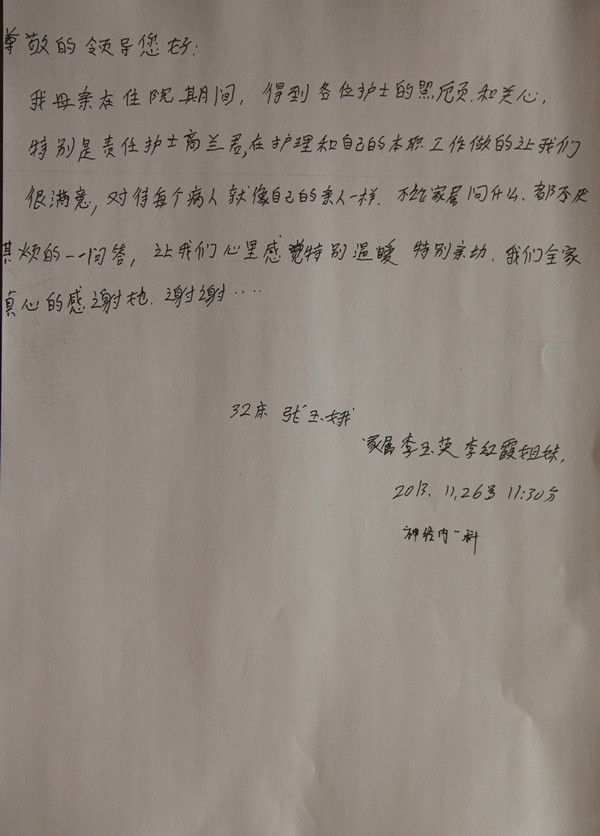 尊敬的领导您好：
我母亲在住院期间，得到各位护士的照顾和关心，
特别是责任护士高兰君，在护理和自己的本职工作做的让我们
很满意，对待每个病人就像自己的亲人一样．不论家属问什么．都不厌
其烦的一一问答，让我们心里感觉特别温暖 特别亲切．我们全家
真心的感谢她．谢谢····
32床 张玉娥
家属李玉英 李红霞姐妹，
2013．11，26号 11:30分
神经内一科